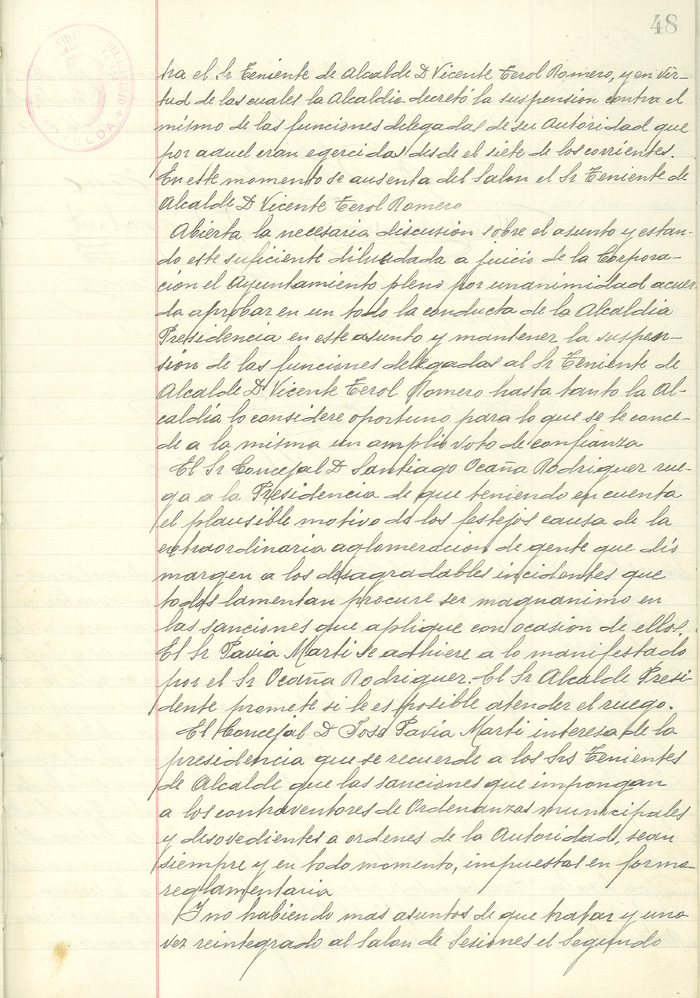 48
tra el Sr Teniente de Alcalde D Vicente Terol Romero, y en vir-
tud de las cuales la Alcaldia decretó la suspensión contra el
mismo de las funciones delegadas de su Autoridad que
por aquel eran egercidas desde el siete de los corrientes.
En este momento se ausenta del Salon el Sr Teniente de
Alcalde D Vicente Terol Romero
Abierta la necesaria discusion sobre el asunto y estan-
do este suficiente dilucidada a juicio de la Corpora-
ción el Ayuntamiento pleno por unanimidad acuer
da aprobar en un todo la conducta de la Alcaldia
Presidencia en este asunto y mantener la suspen-
sión de las funciones delegadas al Sr Teniente de
Alcalde D Vicente Terol Romero hasta tanto la Al-
caldía lo considere oportuno para lo que se le conce-
de a la misma un amplio voto de confianza
El Sr Concejal D Santiago Ocaña Rodriguer rue-
ga a la Presidencia de que teniendo en cuenta
el plausible motivo de los festejos causa de la
extraordinaria aglomeracion de gente que dió
margen a los desagradables incidentes que
todos lamentan procure ser magnanimo en
las sanciones que aplique con ocasión de ellos.
El Sr Pavia Marti se adhiere a lo manifestado
por el Sr Ocaña Rodriguer. El Sr Alcalde Presi-
dente promete si le es posible atender el ruego.
El Concejal D José Pavía Marti interesa de la
presidencia que se recuerde a los Srs Tenientes
de Alcalde que las sanciones que impongan
a los contraventores de Ordenanzas municipales
y desovedientes a ordenes de la Autoridad, sean
siempre y en todo momento, impuestas en forma
reglamentaria
Y no habiendo mas asuntos de que tratar y una
vez reintegrado al Salon de Sesiones el Segundo